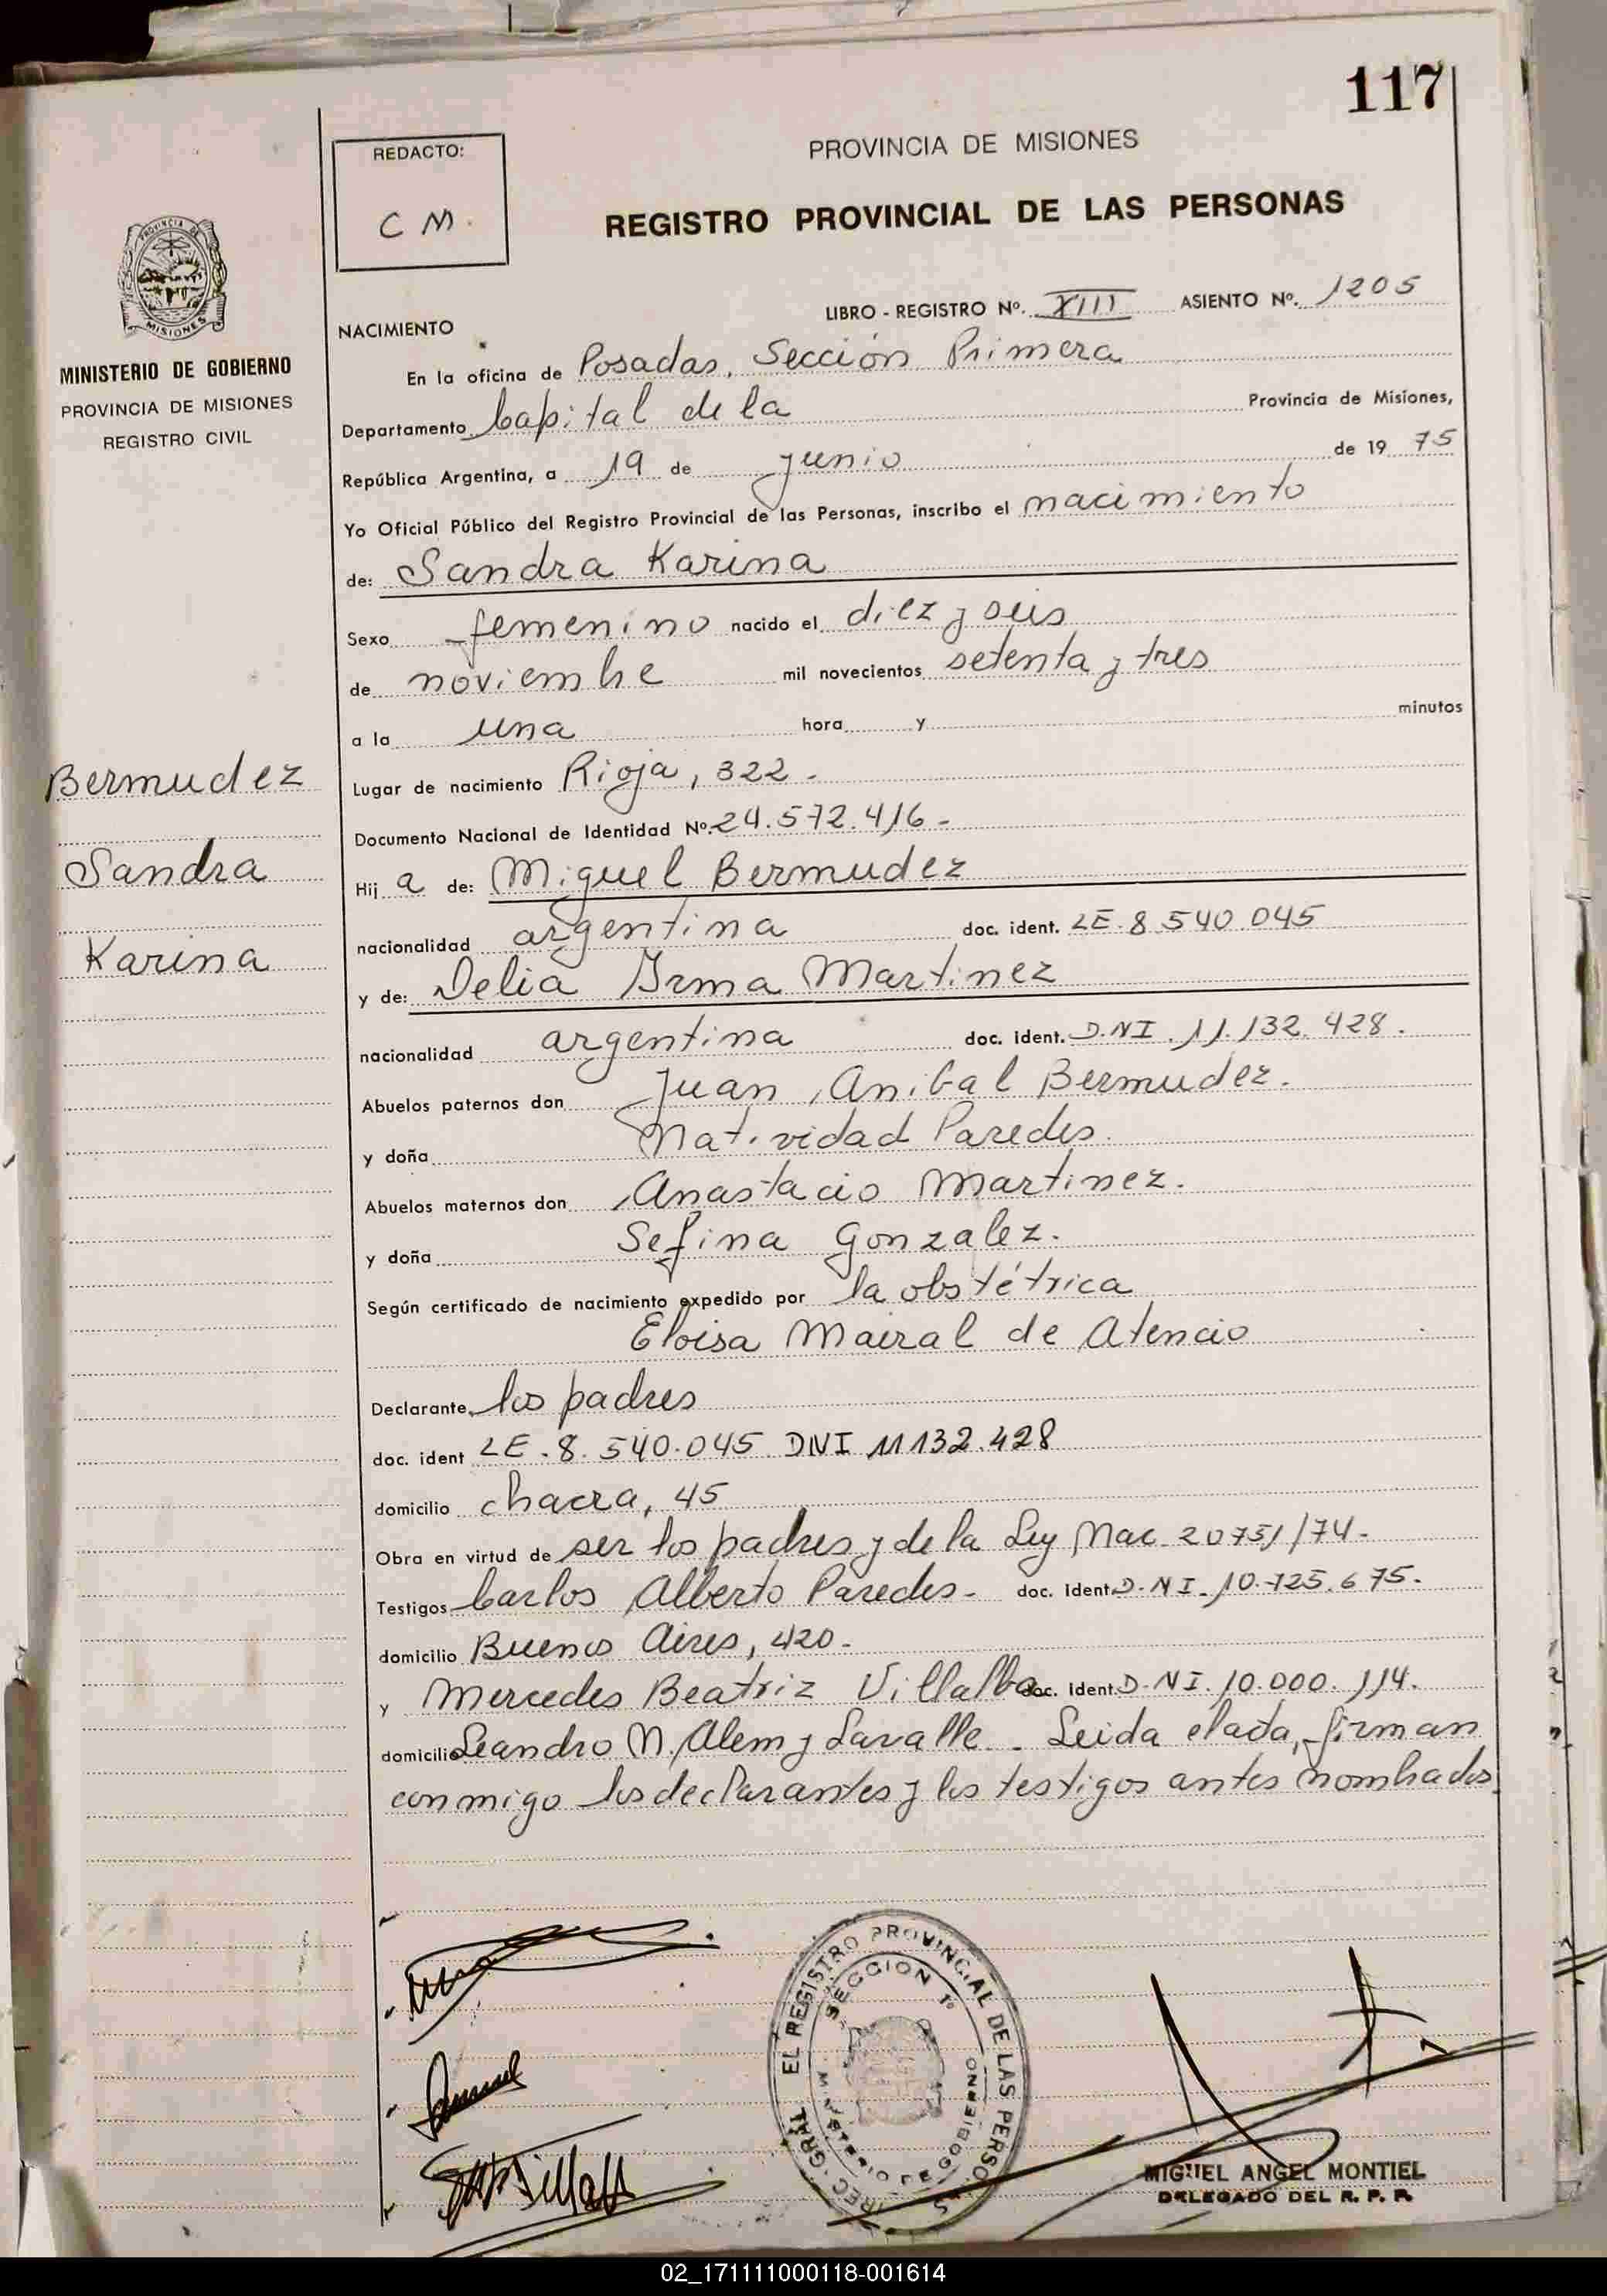 117
REDACTO:
C M.
PROVINCIA DE MISIONES
REGISTRO PROVINCIAL DE LAS PERSONAS
PROVINCIA DE
MISIONES
MINISTERIO DE GOBIERNO
PROVINCIA DE MISIONES
REGISTRO CIVIL
LIBRO - REGISTRO Nº. XIII ASIENTO Nº. 1205
NACIMIENTO
En la oficina de Posadas, Sección Primera
Departamento Capital de la Provincia de Misiones,
República Argentina, a 19 de junio de 19 75
Yo Oficial Público del Registro Provincial de las Personas, inscribo el nacimiento
de: Sandra Karina
Sexo femenino nacido el diez y seis
de noviembre mil novecientos setenta y tres
a la una hora y minutos
Lugar de nacimiento Rioja, 322 -
Documento Nacional de Identidad Nº. 24.572.416 -
Hij a de: Miguel Bermudez
nacionalidad argentina doc. ident. LE-8 540.045
y de: Delia Irma Martinez
nacionalidad argentina doc. ident. D.NI. 11.132.428.
Abuelos paternos don Juan Anibal Bermudez.
y doña Natividad Paredes.
Abuelos maternos don Anastacio Martinez.
y doña Sefina Gonzalez.
Según certificado de nacimiento expedido por la obstétrica
Eloisa Mairal de Atencio
Declarante los padres
doc. ident LE-8.540.045 DNI 11132.428
domicilio chacra, 45
Obra en virtud de ser los padres y de la Ley Nac. 20751/74-
Testigos Carlos Alberto Paredes- doc. Ident. D-NI-10.725.675.
domicilio Buenos Aires, 420-
y Mercedes Beatriz Villalba doc. ident. D-NI.10.000.114.
domicilio Leandro N. Alem y Lavalle - Leida elacta, firman
conmigo los declarantes y los testigos antes nombrados
Bermudez
Sandra
Karina
EL REGISTRO PROVINCIAL DE LAS PERSONAS
SECCION 1º
MINISTERIO DE GOBIERNO
MIGUEL ANGEL MONTIEL
DELEGADO DEL R. P. P.
02_171111000118-001614